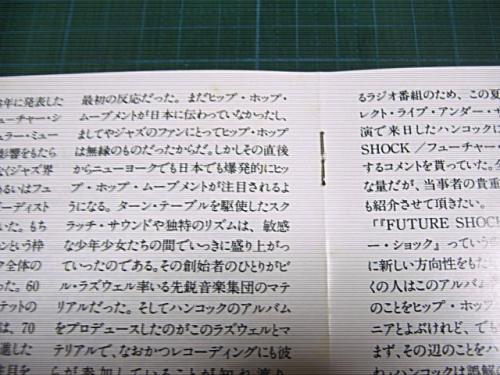 年に発表した
ューチャー・シ
ュラー・ミュー
影響をもたら
なくジャズ界
あるいはフュ
ーディスト
いた。もち
ンという枠
ク全体の
った。60
テットの
は、70
進した
注目を
最初の反応だった。まだヒップ・ホップ・
ムーブメントが日本に伝わっていなかったし、
ましてやジャズのファンにとってヒップ・ホップ
は無縁のものだったからだ。しかしその直後
からニューヨークでも日本でも爆発的にヒッ
プ・ホップ・ムーブメントが注目されるよ
うになる。ターン・テーブルを駆使したスク
ラッチ・サウンドや独特のリズムは、敏感
な少年少女たちの間でいっきに盛り上がっ
ていったのである。その創始者のひとりがビ
ル・ラズウェル率いる先鋭音楽集団のマテ
リアルだった。そしてハンコックのアルバム
をプロデュースしたのがこのラズウェルとマ
テリアルで、なおかつレコーディングにも彼
らが参加していることが知れ渡り
るラジオ番組のため、この夏
レクト・ライブ・アンダー・ザ
演で来日したハンコックに
SHOCK/フューチャー・
するコメントを貰っていた。全
な量だが、当事者の貴重
も紹介させて頂きたい。
「『FUTURE SHOC
ー・ショック』っていう
に新しい方向性をもた
くの人はこのアルバム
のことをヒップ・ホップ
ニアとよぶけれど、でも
まず、その辺のことをハ
わ。ハンコックは誤解